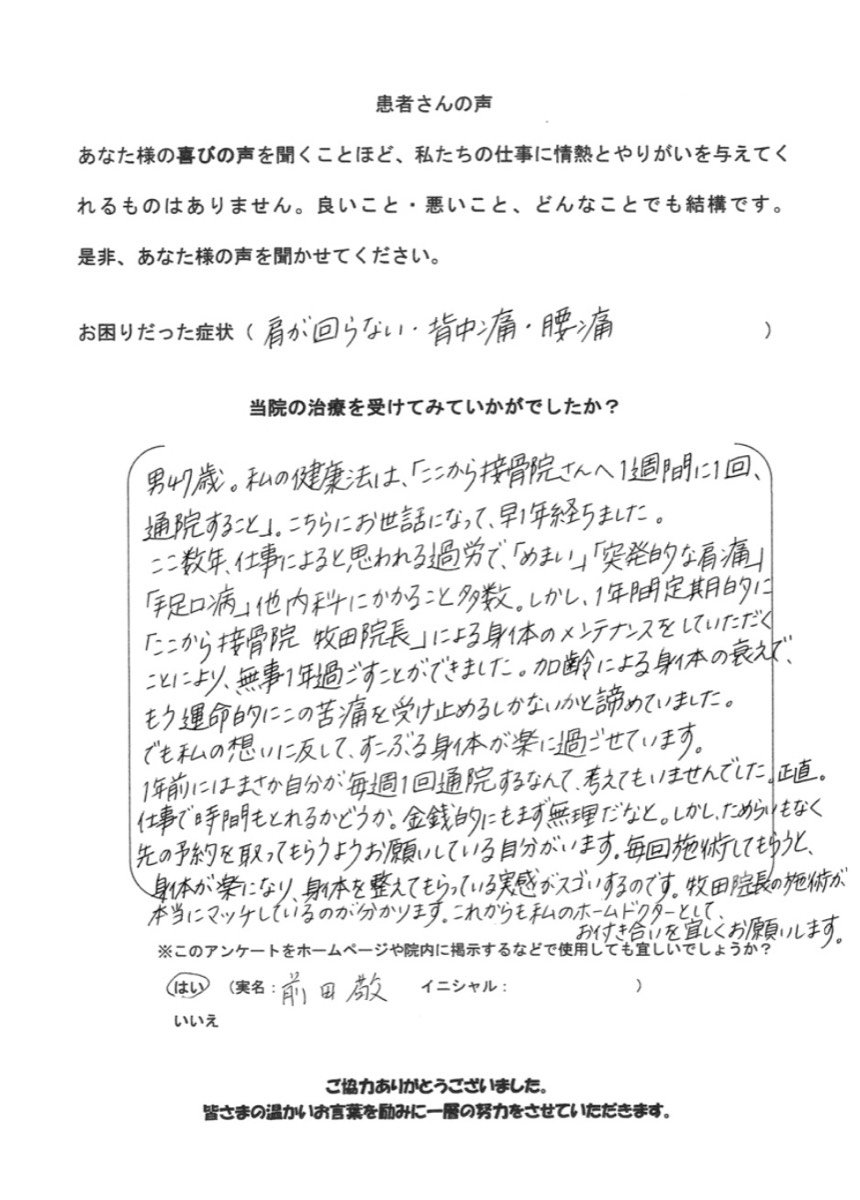 患者さんの声
あなた様の喜びの声を聞くことほど、私たちの仕事に情熱とやりがいを与えてく
れるものはありません。良いこと・悪いこと、どんなことでも結構です。
是非、あなた様の声を聞かせてください。
お困りだった症状（ 肩が回らない・背中痛・腰痛 ）
当院の治療を受けてみていかがでしたか？
男47歳。私の健康法は、「ここから接骨院さんへ1週間に1回、
通院すること」。こちらにお世話になって、早1年経ちました。
ここ数年、仕事によると思われる過労で、「めまい」「突発的な肩痛」
「手足口病」他内科にかかること多数。しかし、1年間定期的に
「ここから接骨院 牧田院長」による身体のメンテナンスをしていただく
ことにより、無事1年過ごすことができました。加齢による身体の衰えで、
もう運命的にこの苦痛を受け止めるしかないかと諦めていました。
でも私の想いに反して、すこぶる身体が楽に過ごせています。
1年前にはまさか自分が毎週1回通院するなんて、考えてもいませんでした。正直。
仕事で時間もとれるかどうか。金銭的にもまず無理だなと。しかし、ためらいもなく
先の予約を取ってもらうようお願いしている自分がいます。毎回施術してもらうと、
身体が楽になり、身体を整えてもらっている実感がスゴいするのです。牧田院長の施術が
本当にマッチしているのが分かります。これからも私のホームドクターとして、
お付き合いを宜しくお願いします。
※このアンケートをホームページや院内に掲示するなどで使用しても宜しいでしょうか？
はい （実名：前田 敬 イニシャル： ）
いいえ
ご協力ありがとうございました。
皆さまの温かいお言葉を励みに一層の努力をさせていただきます。